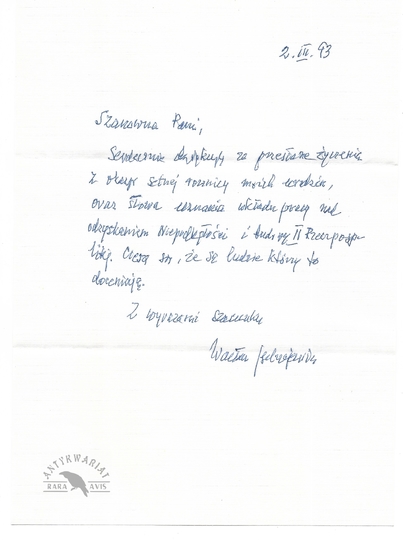 2. III. 93
Szanowna Pani,
Serdecznie dziękuję za przesłane życzenia
z okazji setnej rocznicy moich urodzin,
oraz słowa uznania wkładu pracy nad
odzyskaniem Niepodległości i budowy II Rzeczpospo-
litej. Cieszę się, że są ludzie którzy to
doceniają.
Z wyrazami szacunku
Wacław
ANTYKWARIAT
RARA AVIS